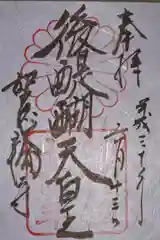 奉拝
平成三十年
六月十三日
後醍醐天皇
如意輪寺